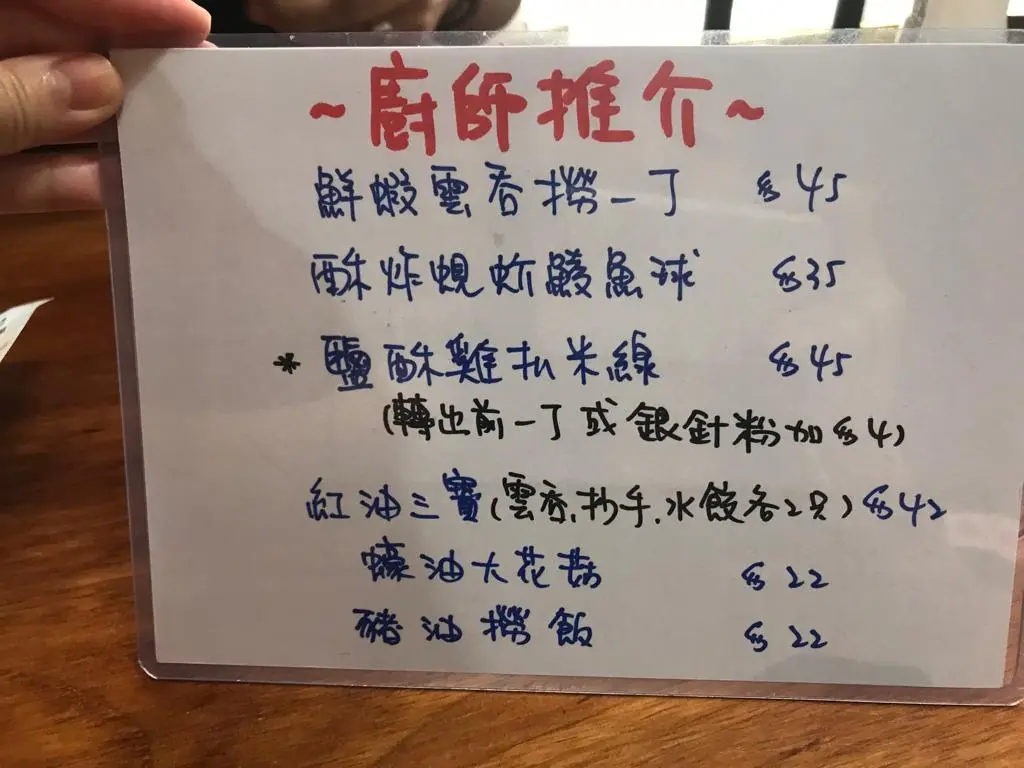 ~廚師推介~
鮮蝦雲吞撈一丁 $45
酥炸蜆蚧鯪魚球 $35
* 鹽酥雞扒米線 $45
(轉出前一丁或銀針粉加$4)
紅油三寶(雲吞,抄手,水餃各2只) $42
蠔油大花菇 $22
豬油撈飯 $22